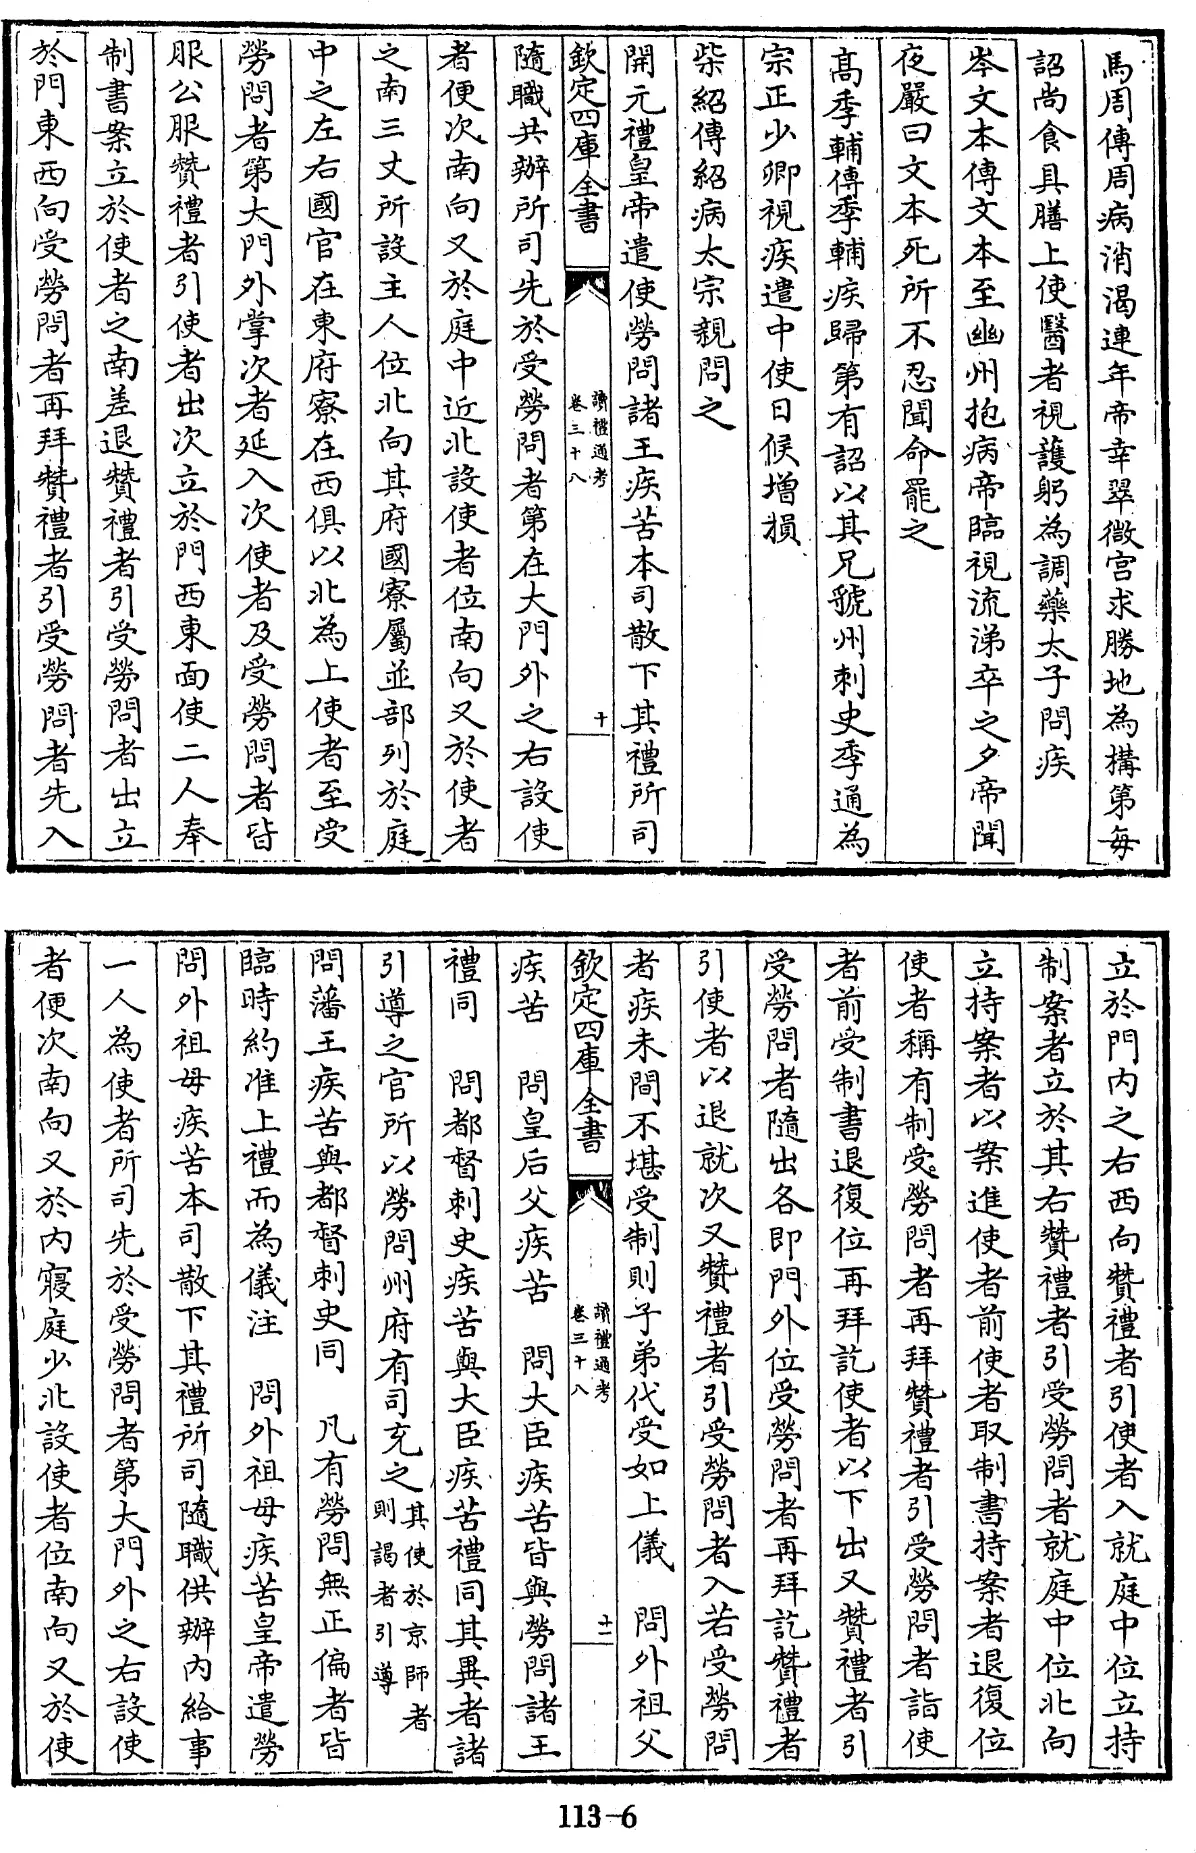 馬周傳周病消渴連年帝幸翠微宫求勝地為構第每
詔尚食具膳上使醫者視護躬為調藥太子問疾
岑文本傳文本至幽州抱病帝臨視流涕卒之夕帝聞
夜嚴曰文本死所不忍聞命罷之
高季輔傳季輔疾歸第有詔以其兄虢州刺史季通為
宗正少卿視疾遣中使日候增損
柴紹傳紹病太宗親問之
開元禮皇帝遣使勞問諸王疾苦本司散下其禮所司
欽定四庫全書
讀禮通考
卷三十八
十
隨職共辦所司先於受勞問者第在大門外之右設使
者便次南向又於庭中近北設使者位南向又於使者
之南三丈所設主人位北向其府國寮屬並部列於庭
中之左右國官在東府寮在西俱以北為上使者至受
勞問者第大門外掌次者延入次使者及受勞問者皆
服公服贊禮者引使者出次立於門西東面使二人奉
制書案立於使者之南差退贊禮者引受勞問者出立
於門東西向受勞問者再拜贊禮者引受勞問者先入
立於門内之右西向贊禮者引使者入就庭中位立持
制案者立於其右贊禮者引受勞問者就庭中位北向
立持案者以案進使者前使者取制書持案者退復位
使者稱有制受勞問者再拜贊禮者引受勞問者詣使
者前受制書退復位再拜訖使者以下出又贊禮者引
受勞問者隨出各即門外位受勞問者再拜訖贊禮者
引使者以退就次又贊禮者引受勞問者入若受勞問
者疾未間不堪受制則子弟代受如上儀　問外祖父
欽定四庫全書
讀禮通考
卷三十八
十一
疾苦　問皇后父疾苦　問大臣疾苦皆與勞問諸王
禮同　問都督刺史疾苦與大臣疾苦禮同其異者諸
引導之官所以勞問州府有司充之其使於京師者則謁者引導
問藩王疾苦與都督刺史同　凡有勞問無正偏者皆
臨時約准上禮而為儀注　問外祖母疾苦皇帝遣勞
問外祖母疾苦本司散下其禮所司隨職供辦内給事
一人為使者所司先於受勞問者第大門外之右設使
者便次南向又於内寢庭少北設使者位南向又於使
113-6